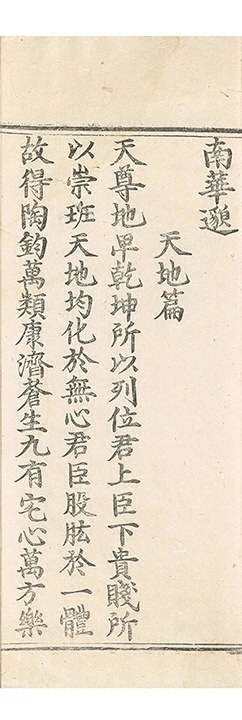 南華邈
天地篇
天尊地卑乾坤所以列位君上臣下貴賤所
以崇班天地均化於無心君臣股肱於一體
故得陶鈞萬類康濟蒼生九有宅心萬方樂